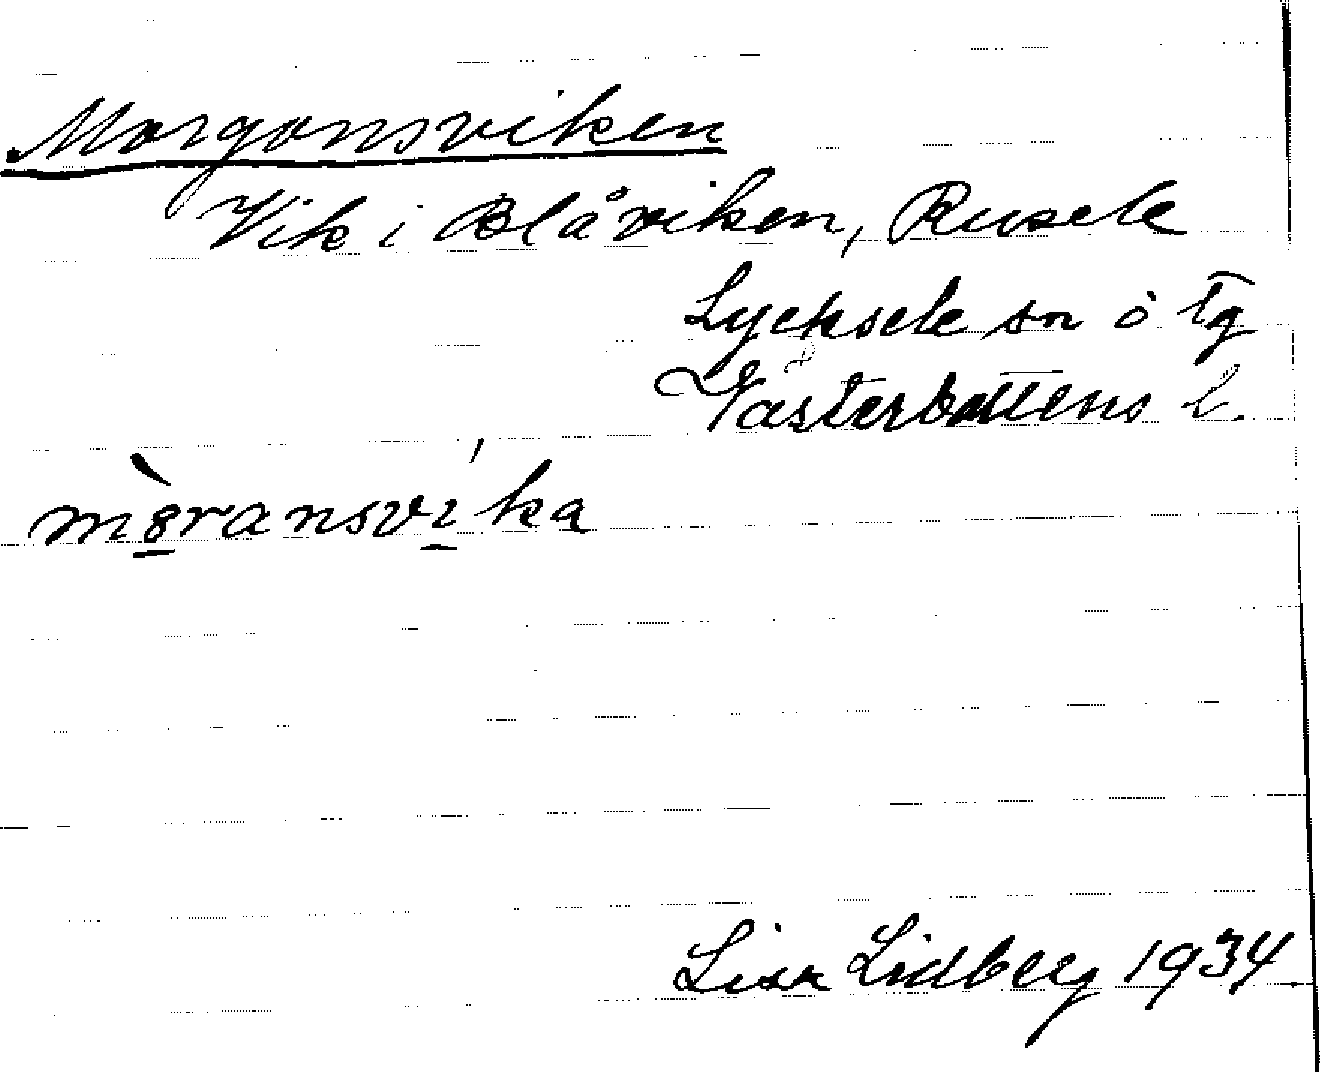 Morgonsviken
Vik i Blåviken, Rusele
Lycksele sn o tg
Västerbottens l.
Lisa Lidberg 1934